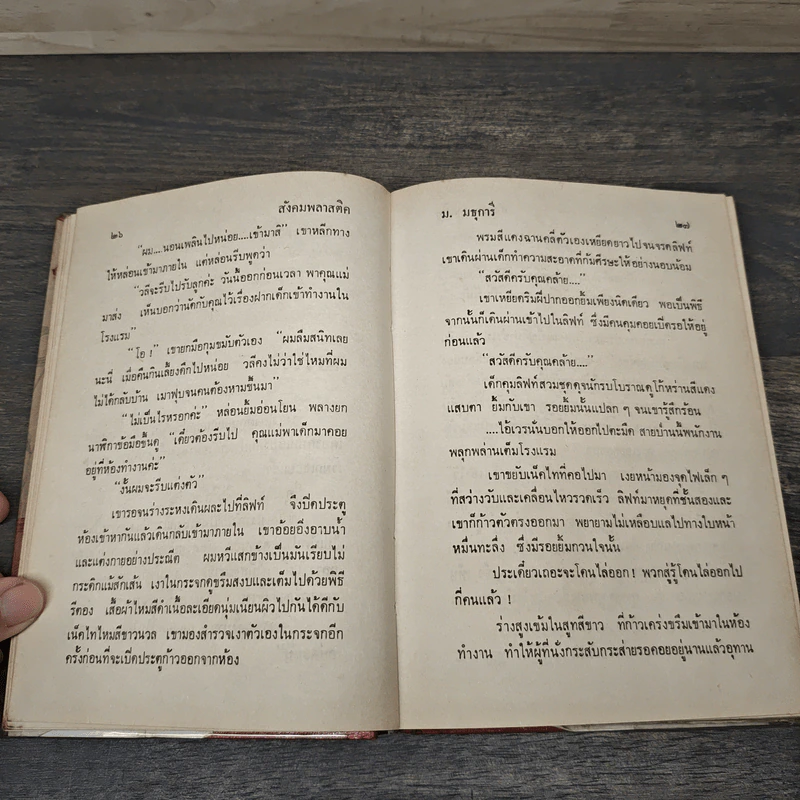 ๒๖
สังคมพลาสติค
"ผม....นอนเพลินไปหน่อย....เข้ามาสิ" เขาหลีกทาง
ให้หล่อนเข้ามาภายใน แต่หล่อนรีบพูดว่า
"วลีจะรีบไปรับลูกค่ะ วันนี้ออกก่อนเวลา พาคุณแม่
มาส่ง เห็นบอกว่านัดกับคุณไว้เรื่องฝากเด็กเข้าทำงานใน
โรงแรม"
"โอ !" เขายกมือกุมขมับตัวเอง "ผมลืมสนิทเลย
นะนี่ เมื่อคืนกินเลี้ยงดึกไปหน่อย วลีคงไม่ว่าใช่ไหมที่ผม
ไม่ได้กลับบ้าน เมาฟุบจนคนต้องหามขึ้นมา"
"ไม่เป็นไรหรอกค่ะ" หล่อนยิ้มอ่อนโยน พลางยก
นาฬิกาข้อมือขึ้นดู "เดี๋ยวต้องรีบไป คุณแม่พาเด็กมาคอย
อยู่ที่ห้องทำงานค่ะ"
"งั้นผมจะรีบแต่งตัว"
เขารอจนร่างระหงเดินผละไปที่ลิฟท์ จึงปิดประตู
ห้องเข้าหากันแล้วเดินกลับเข้ามาภายใน เขาอ้อยอิ่งอาบน้ำ
และแต่งกายอย่างประณีต ผมหวีแสกข้างเป็นมันเรียบไม่
กระดิกแม้สักเส้น เงาในกระจกดูขรึมสงบและเต็มไปด้วยพิธี
รีตอง เสื้อผ้าไหมสีดำเนื้อละเอียดนุ่มเนียนผิวไปกันได้ดีกับ
เน็คไทไหมสีขาวนวล เขามองสำรวจเงาตัวเองในกระจกอีก
ครั้งก่อนที่จะเปิดประตูก้าวออกจากห้อง
ม. มธุการี
๒๗
พรมสีแดงฉานคลี่ตัวเองเหยียดยาวไปจนจรดลิฟท์
เขาเดินผ่านเด็กทำความสะอาดที่ก้มศีรษะให้อย่างนอบน้อม
"สวัสดีครับคุณคล้าย...."
เขาเหยียดริมฝีปากออกยิ้มเพียงนิดเดียว พอเป็นพิธี
จากนั้นก็เดินผ่านเข้าไปในลิฟท์ ซึ่งมีคนคุมคอยเปิดรอให้อยู่
ก่อนแล้ว
"สวัสดีครับคุณคล้าย...."
เด็กคุมลิฟท์สวมชุดดุจนักรบโบราณดูโก้หร่านสีแดง
แสบตา ยิ้มกับเขา รอยยิ้มนั้นแปลก ๆ จนเขารู้สึกร้อน
....ไอ้เวรนั่นบอกให้ออกไปตะมืด สายป่านนี้พนักงาน
พลุกพล่านเต็มโรงแรม
เขาขยับเน็คไทที่คอไปมา เงยหน้ามองจุดไฟเล็ก ๆ
ที่สว่างวับและเคลื่อนไหวรวดเร็ว ลิฟท์มาหยุดที่ชั้นสองและ
เขาก็ก้าวตัวตรงออกมา พยายามไม่เหลือบแลไปทางใบหน้า
หมื่นทะลึ่ง ซึ่งมีรอยยิ้มกวนใจนั้น
ประเดี๋ยวเถอะจะโดนไล่ออก ! พวกสู่รู้โดนไล่ออกไป
กี่คนแล้ว !
ร่างสูงเข้มในสูทสีขาว ที่ก้าวเคร่งขรึมเข้ามาในห้อง
ทำงาน ทำให้ผู้ที่นั่งกระสับกระส่ายรอคอยอยู่นานแล้วอุทาน